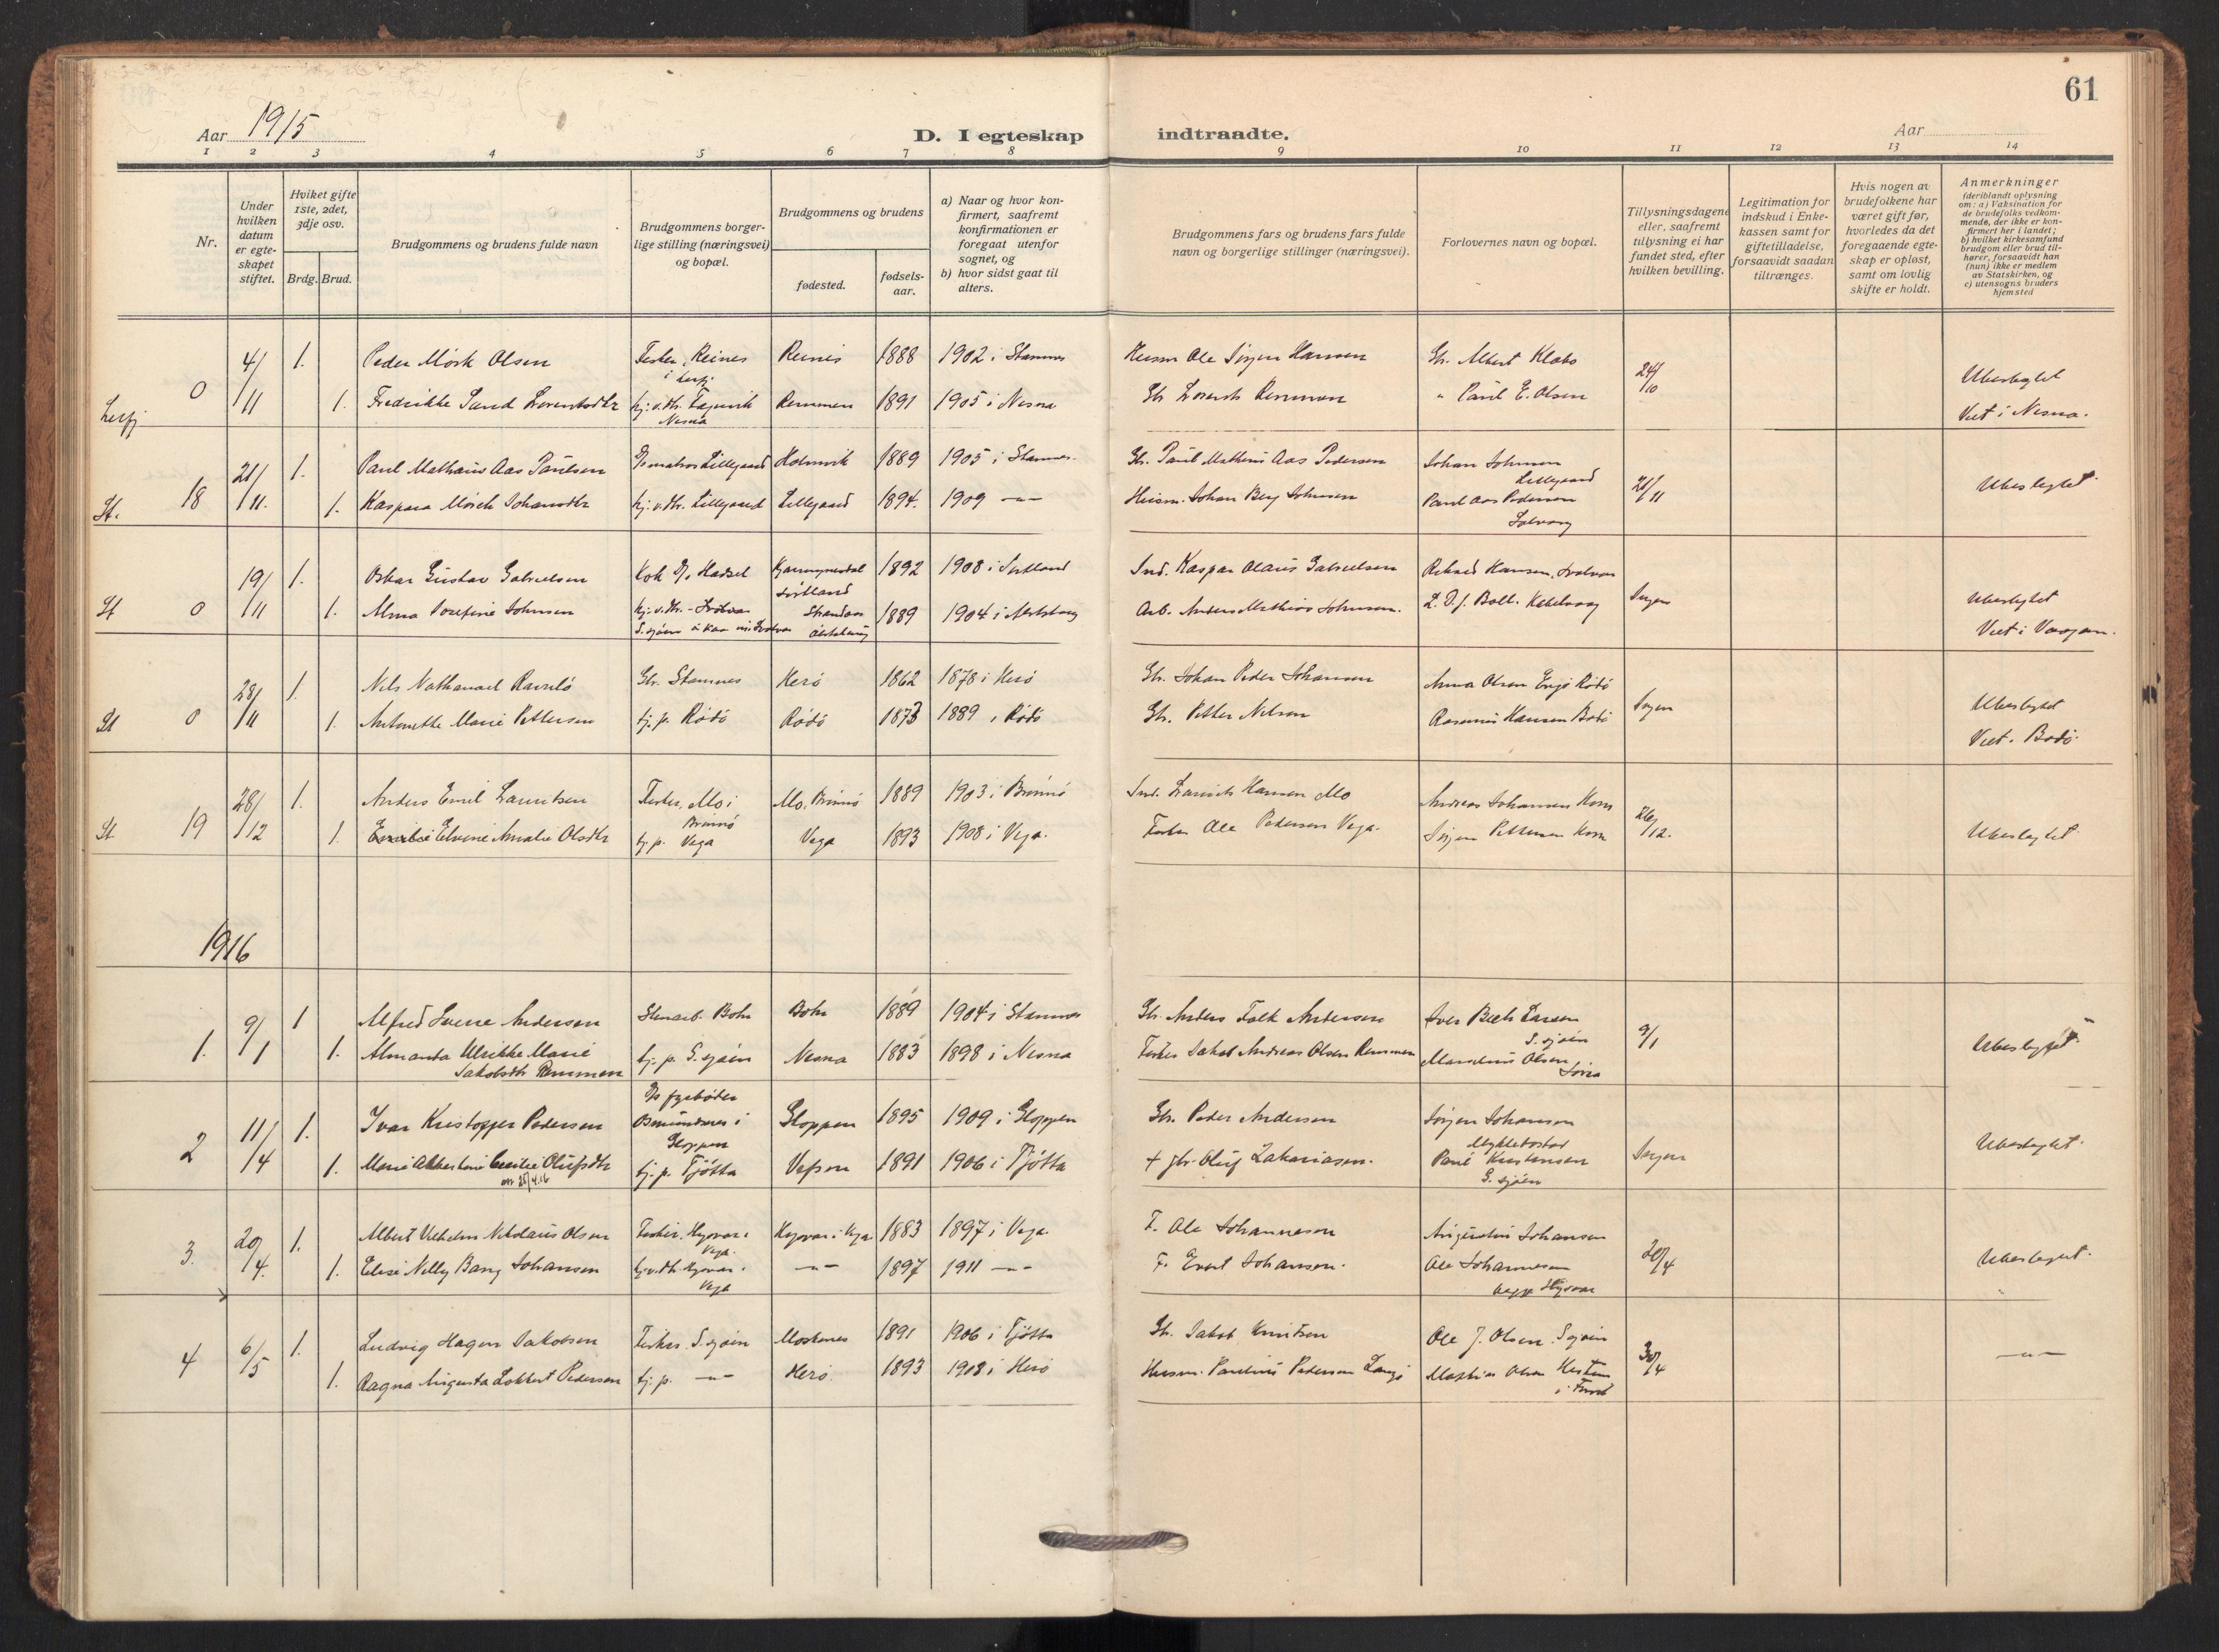 61
Aar 1915
D. I egteskap indtraadte.
Aar
1 2 3 4 5 6 7 8 9 10 11 12 13 14
Nr.
Under hvilken datum er egte-skapet stiftet.
Hviket gifte 1ste, 2det, 3dje osv.
Brdg. Brud.
Brudgommens og brudens fulde navn
Brudgommens borger-lige stilling (næringsvei) og bopæl.
Brudgommens og brudens
fødested.
fødsels-aar.
a) Naar og hvor kon-firmert, saafremt konfirmationen er foregaat utenfor sognet, og
b) hvor sidst gaat til alters.
Brudgommens fars og brudens fars fulde navn og borgerlige stillinger (næringsvei).
Forlovernes navn og bopæl.
Tillysningsdagene eller, saafremt tillysning ei har fundet sted, efter hvilken bevilling.
Legitimation for indskud i Enke-kassen samt for giftetilladelse, forsaavidt saadan tiltrænges.
Hvis nogen av brudefolkene har været gift før, hvorledes da det foregaaende egte-skap er opløst, samt om lovlig skifte er holdt.
Anmerkninger (deriblandt oplysning om: a) Vaksination for de brudefolks vedkom-mende, der ikke er kon-firmert her i landet; b) hvilket kirkesamfund brudgom eller brud til-hører, forsaavidt han (hun) ikke er medlem av Statskirken, og c) utensogns bruders hjemsted
0 4/11 1. Peder Mörk Olsen Fisker, Reines i Leirfj. Reines 1888 1902 i Stamnes Husm Ole Jörgen Hansen Gb. Albert Klabo 24/10 Ubeslegtet
Leirfj 1. Fredrikke Sund Lorentsdtr hj. v. dtr. Remmen 1891 1905 i Nesna Gb Lorents Remmen " Paul E. Olsen Viet i Nesna.
Nesna
18 21/11. 1. Paul Mathias Aas Paulsen Lillegaard Holmvik 1889 1905 i Stamnes. Gb. Paul Mathius Aas Pedersen Johan Johnsen Lillegaard 21/11 Ubeslegtet
St. 1. Kaspara Mörch Johansdtr hj. v. dtr. Lillegaard Lillegaard 1894. 1909 -"- Husm. Johan Berg Johnsen Paul Aas Pedersen Solvang
St 0 19/11 1. Oskar Gustav Gabrielsen Kok D/s Hadsel Sortland 1892 1908 i Sortland Ind. Kaspar Olaus Gabrielsen Rikard Hansen, Svolvær Ingen Ubeslegtet
1. Alma Josefine Johnsen hj. v. dtr. - Svolvær 1889 1904 i Arb. Anders Mathias Johnsen. Viet i Vaagan.
St 0 28/11 1. Nils Nathanael Gb. Stamnes Herö 1862 1878 i Herö Gb. Johan Peder Johansen Anna Olsen Rödö Ingen Ubeslegtet
1. Antonette Marie Pettersen tj. p. Rödö Rödö 1873 1889 i Rödö Gb. Petter Nilsen Rasmus Hansen Bodö Viet. Bodö.
St 19 28/12 1. Anders Emil Lauritsen Fisker, Mo i Brönnö Mo, Brönnö 1889 1903 i Brönnö Ind. Laurits Hansen Mo Andreas Johansen 26/12.
1. Elvine Amalie Olsdtr tj. p. Vega Vega 1893 1908 i Vega. Fisker Ole Pedersen Vega. Jörgen Pettersen Ubeslegtet
1916
1. 9/1 1 Alfred Sverre Andersen Stenarb. Bohn Bohn 1889 1904 i Stamnes Gb. Anders Falk Andersen Iver Bech Larsen S. sjöen 9/1 Ubeslegtet
1. Almanta Ulrikke Marie Jakobsdtr Remmen tj. p. S. sjöen Nesna 1883 1898 i Nesna Fisker Jakob Andreas Olsen Remmen Olsen
2 11/4 1. Ivar Kristoffer Pedersen D/s fyrböter i Gloppen Gloppen 1895 1909 i Gloppen Gb. Peder Andersen Jörgen Johansen Ingen Ubeslegtet.
1. Marie Cecilie Olufsdtr tj. p. Tjötta Vefsen 1891 1906 i Tjötta + gbr. Oluf Zakariasen. Paul Kristensen S. sjöen
3. 20/4. 1. Albert Vilhelm Nikolaus Olsen Fisker. Hysvær i Vega. Hysvær i Vega 1883 1897 i Vega. F. Ole Johannesen Augustin Johansen 20/4 Ubeslegtet.
1. Elise Nelly Bang Johansen Hysvær i Vega -"- 1897 1911 -"- F. Evert Johansen. Ole Johannesen Hysvær
4 6/5 1. Ludvig Hagen Jakobsen Fisker. S. sjöen Moskenes 1891 1906 i Tjötta Gb. Jakob Knutsen Ole J. Olsen. S sjöen 30/4 -"-
1. Ragna Augusta Lokkert Pedersen tj. p. -"- Herö. 1893 1908 i Herö Husm. Paulinus Pedersen Mathias Olsen